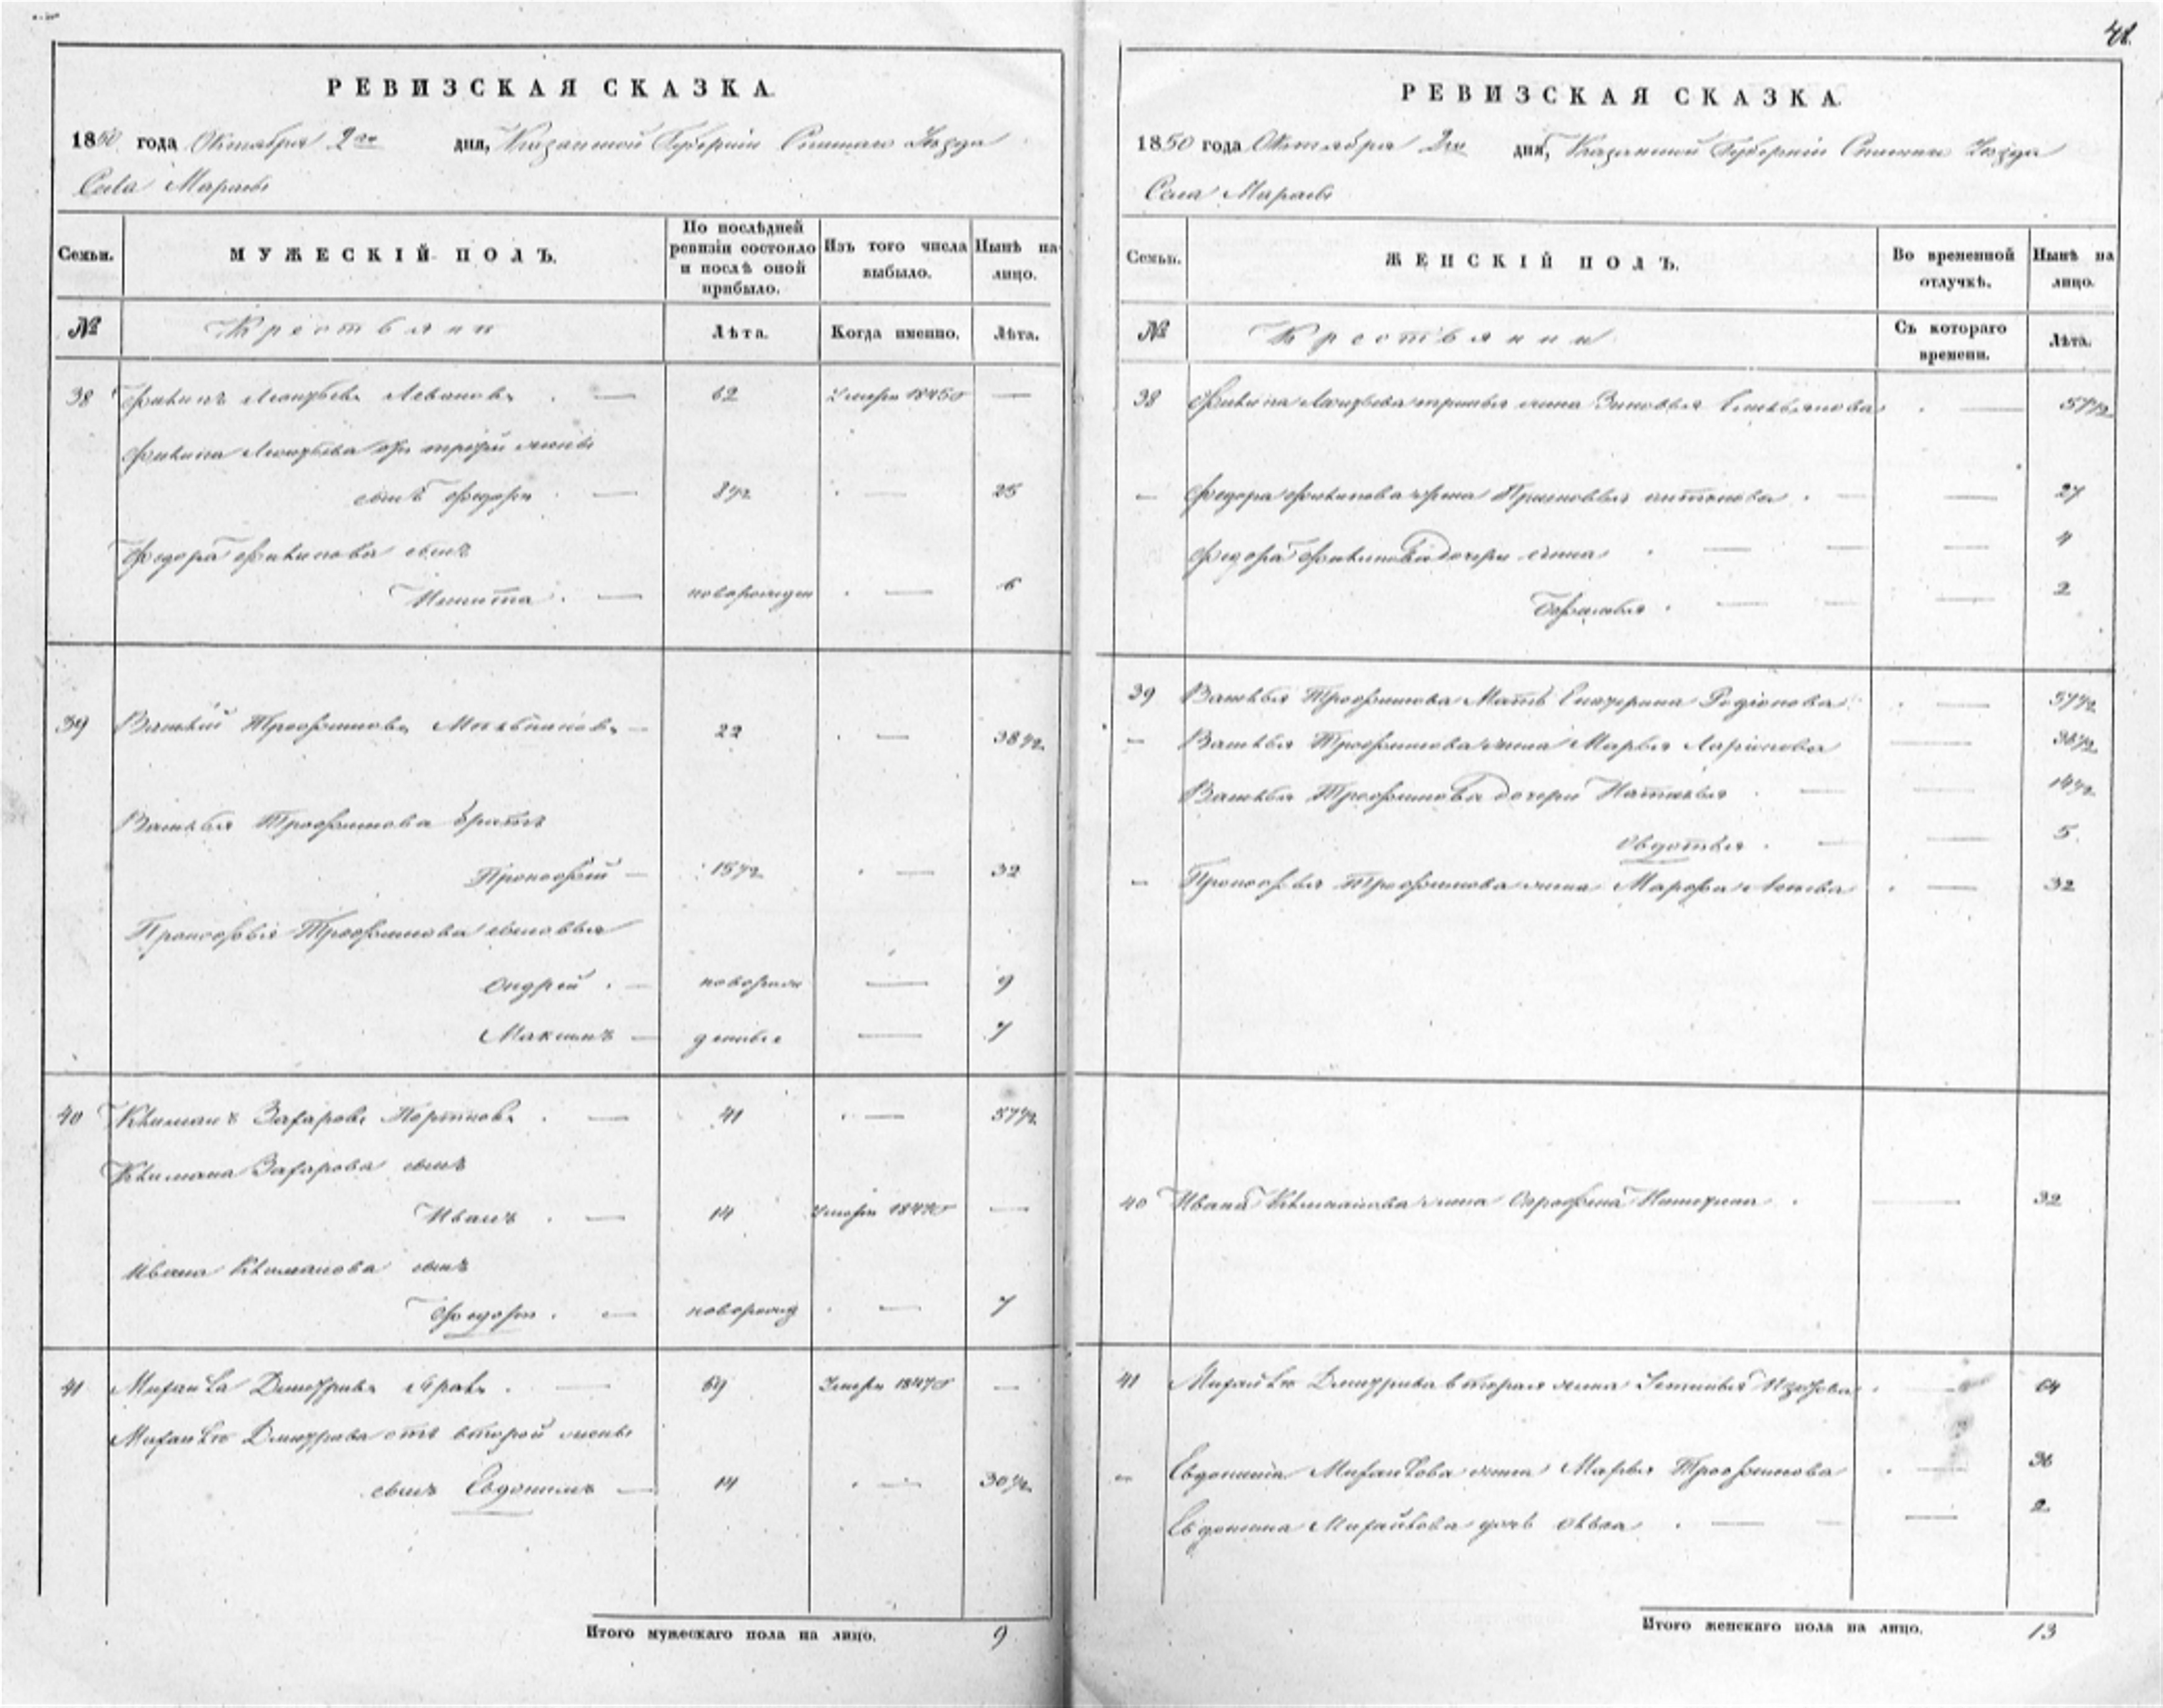 41.
РЕВИЗСКАЯ СКАЗКА.
1850 года Октября 2го дня, Казанской Губерніи Спаскаго Уѣзда
Села Марассы
Семьи. МУЖЕСКІЙ ПОЛЪ. По послѣдней ревизіи состояло и послѣ оной прибыло. Изъ того числа выбыло. Нынѣ на лицо.
№ Крестьяне Лѣта. Когда именно. Лѣта.
38 Филипъ Левановъ 62 Умеръ 1845о —
Филипа от третьей жены
сынъ Федоръ 8½ — 25
Федора Филипова сынъ
Никита новорожден — 6
39 Василій Трофимовъ 22 — 38½
Василья Трофимова братъ
Прокофій 15½ — 32
Прокофья Трофимова сыновья
Андрей новорож — 9
Максимъ денные — 7
40 Климанъ Захаровъ Портновъ 41 — 57½
Климана Захарова сынъ
Иванъ 14 Умеръ 1847о —
Ивана Климанова сынъ
Федоръ новорожд — 7
41 Михайла Дмитріевъ 69 Умеръ 1847о —
Михайлы Дмитріева отъ второй жены
сынъ Евдокимъ 14 — 30½
Итого мужескаго пола на лицо. 9
РЕВИЗСКАЯ СКАЗКА.
1850 года Октября 2го дня, Казанской Губерніи Спаскаго Уѣзда
Села Марассы
Семьи. ЖЕНСКІЙ ПОЛЪ. Во временной отлучкѣ. Нынѣ на лицо.
№ Крестьянки Съ котораго времени. Лѣта.
38 Филипа третья жена Зиновья Емельянова — 57½
— Федора Филипова жена антонова — 27
Федора Филипова дочери Анна — 4
— 2
39 Василья Трофимова Мать Екатерина Родіонова — 57½
— Василья Трофимова жена Марья Ларіонова — 38½
Василья Трофимова дочери Наталья — 14½
Овдотья — 5
— Прокофья Трофимова жена Марфа — 32
40 Ивана Климанова жена Никитина — 32
41 Михайлы Дмитріева вторая жена — 64
— Евдокима Михайлова жена Марья Трофимова — 36
Евдокима Михайлова дочь — 2
Итого женскаго пола на лицо. 13